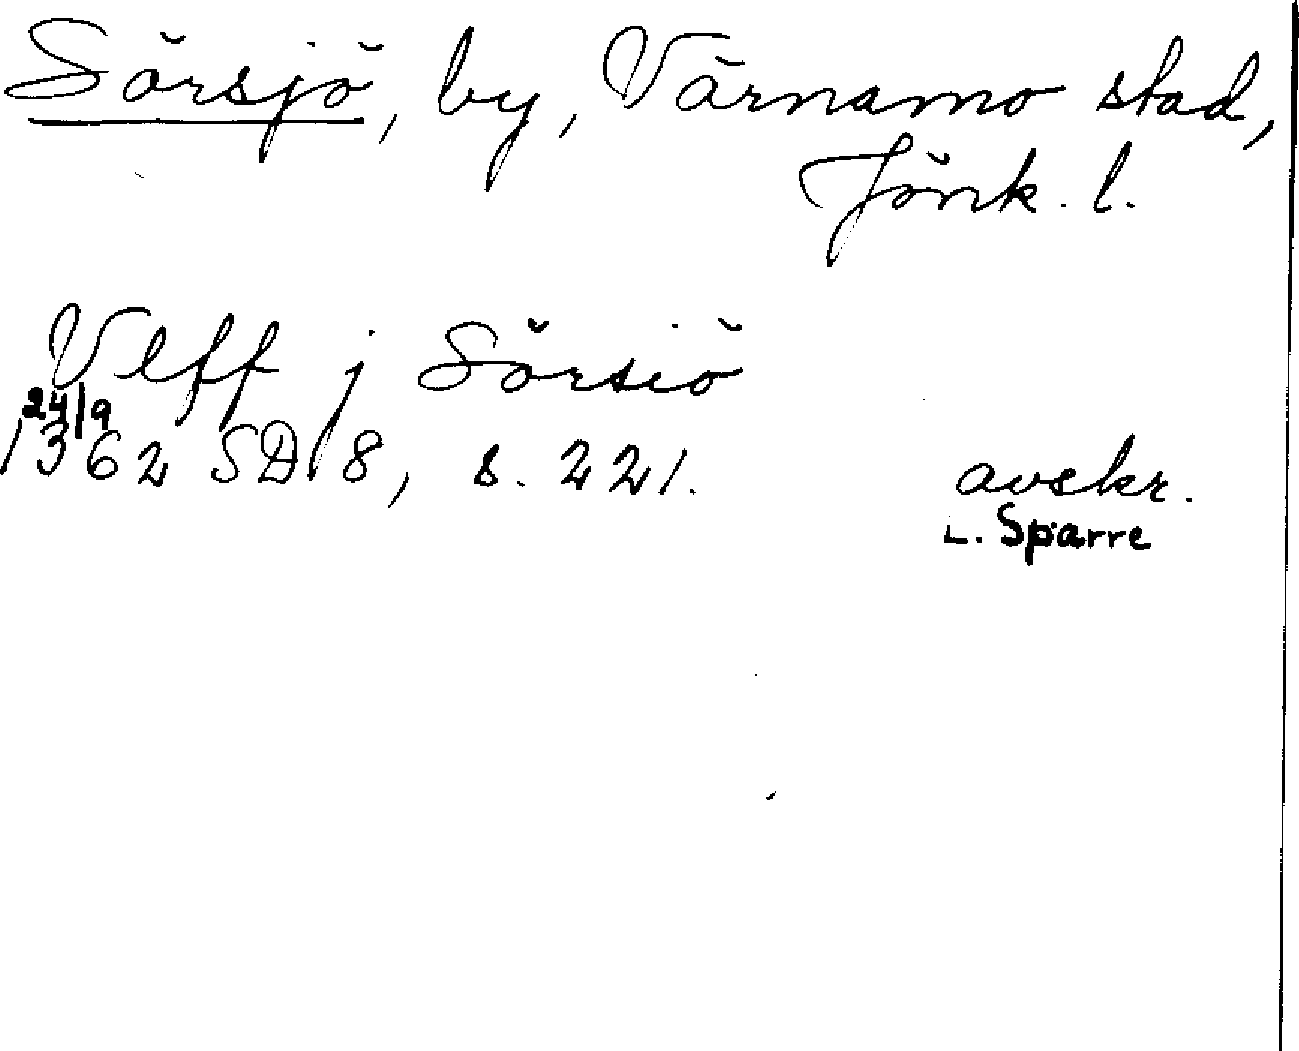 Sörsjö, by, Värnamo stad,
Jönk. l.
Vlff j Sörsiö
24/9
1362 SD 8, s. 221.
avskr.
L. Sparre